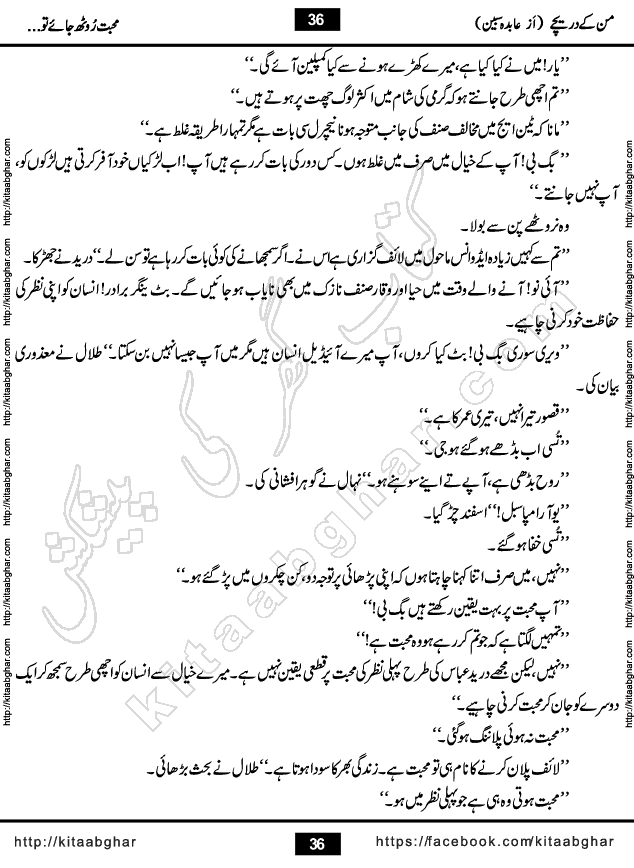 من کے دریچے (از عابدہ سبین)
36
محبت رُوٹھ جائے تو...
’’یار! میں نے کیا کیا ہے، میرے کھڑے ہونے سے کیا کمپلین آئے گی۔‘‘
’’تم اچھی طرح جانتے ہو کہ گرمی کی شام میں اکثر لوگ چھت پر ہوتے ہیں۔‘‘
’’مانا کہ ٹین ایج میں مخالف صنف کی جانب متوجہ ہونا نیچرل سی بات ہے مگر تمہارا طریقہ غلط ہے۔‘‘
’’بگ بی! آپ کے خیال میں صرف میں غلط ہوں۔ کس دور کی بات کر رہے ہیں آپ! اب لڑکیاں خود آفر کرتی ہیں لڑکوں کو،
آپ نہیں جانتے۔‘‘
وہ نروٹھے پن سے بولا۔
’’تم سے کہیں زیادہ ایڈوانس ماحول میں لائف گزاری ہے اس نے۔ اگر سمجھانے کی کوئی بات کر رہا ہے تو سن لے۔‘‘ درید نے جھڑکا۔
’’آئی نو! آنے والے وقت میں حیا اور وقار صنف نازک میں بھی نایاب ہو جائیں گے۔ بٹ ینگر برادر! انسان کو اپنی نظر کی
حفاظت خود کرنی چاہیے۔
’’ویری سوری بگ بی! بٹ کیا کروں، آپ میرے آئیڈیل انسان ہیں مگر میں آپ جیسا نہیں بن سکتا۔‘‘ طلال نے معذوری
بیان کی۔
’’قصور تیرا نہیں، تیری عمر کا ہے۔‘‘
’’تُسی اب بڈھے ہو گئے ہو جی۔‘‘
’’روح بڈھی ہے، آپے تے اینے سوہنے ہو۔‘‘ نہال نے گوہر افشانی کی۔
’’یو آر امپاسبل!‘‘ اسفند چڑ گیا۔
’’تُسی خفا ہو گئے۔
’’نہیں، میں صرف اتنا کہنا چاہتا ہوں کہ اپنی پڑھائی پر توجہ دو، کن چکروں میں پڑ گئے ہو۔‘‘
’’آپ محبت پر بہت یقین رکھتے ہیں بگ بی!‘‘
’’تمہیں لگتا ہے کہ جو تم کر رہے ہو وہ محبت ہے!‘‘
’’نہیں، لیکن مجھے درید عباس کی طرح پہلی نظر کی محبت پر قطعی یقین نہیں ہے۔ میرے خیال سے انسان کو اچھی طرح سمجھ کر ایک
دوسرے کو جان کر محبت کرنی چاہیے۔‘‘
’’محبت نہ ہوئی پلاننگ ہو گئی۔‘‘
’’لائف پلان کرنے کا نام ہی تو محبت ہے۔ زندگی بھر کا سودا ہوتا ہے۔‘‘ طلال نے بحث بڑھائی۔
’’محبت ہوتی وہ ہی ہے جو پہلی نظر میں ہو۔‘‘
کتاب گھر کی پیشکش
kitaabghar.com
http://kitaabghar.com
http://kitaabghar.com
http://kitaabghar.com
http://kitaabghar.com
http://kitaabghar.com
http://kitaabghar.com
http://kitaabghar.com
http://kitaabghar.com
http://kitaabghar.com
http://kitaabghar.com
http://kitaabghar.com
http://kitaabghar.com
http://kitaabghar
36
https://facebook.com/kitaabghar